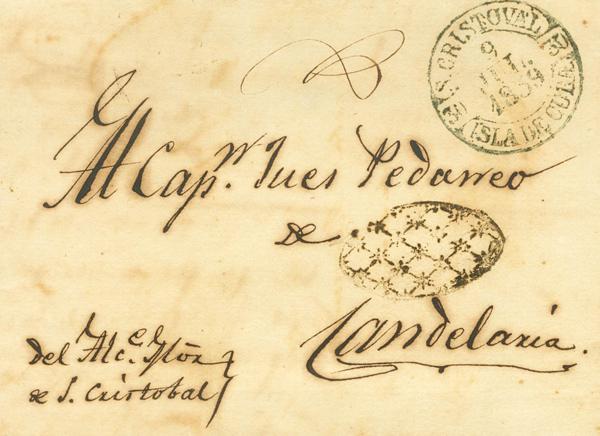 S. CRISTOVAL
9
JUL
1859
ISLA DE CUBA
Al Capn. Jues Pedaneo
de
Candelaria.
del Alce. Mõr
de S. Cristobal